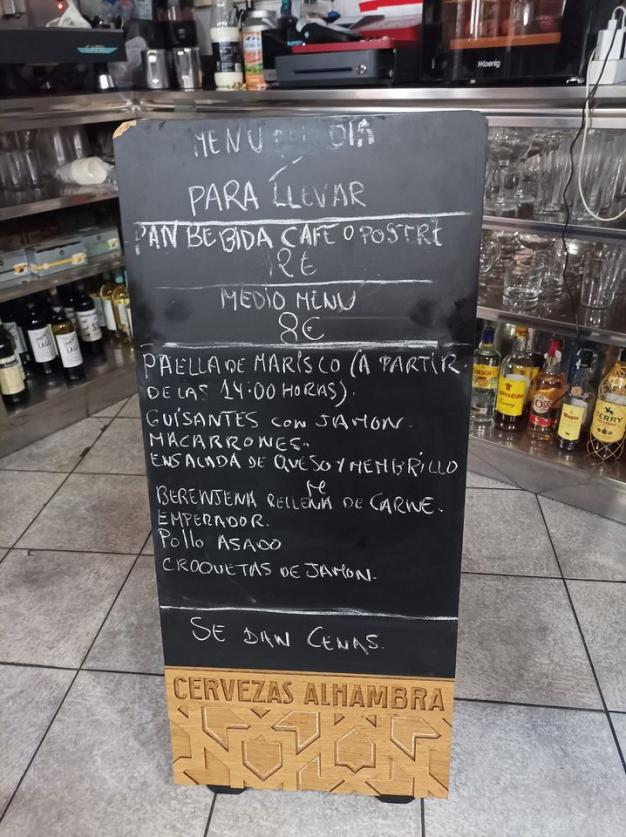 H·Koenig
MENU DEL DIA
PARA LLEVAR
PAN BEBIDA CAFE O POSTRE
12€
MEDIO MENU
8€
PAELLA DE MARISCO (A PARTIR
DE LAS 14:00 HORAS).
GUISANTES CON JAMON.
MACARRONES.
ENSALADA DE QUESO Y MEMBRILLO
BERENJENA RELLENA DE CARNE.
EMPERADOR.
POLLO ASADO
CROQUETAS DE JAMON.
SE DAN CENAS.
CERVEZAS ALHAMBRA